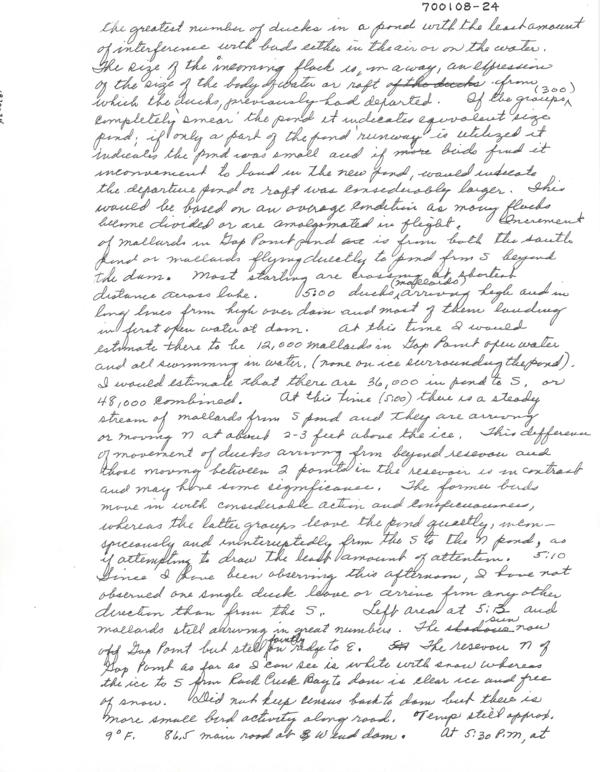 700108-24
the greatest number of ducks in a pond with the least amount
of interference with birds either in the air or on the water.
The size of the incoming flock is, in a way, an expression
of the size of the body of water or raft of the ducks from
which the ducks previously had departed. If the groups (300)
completely "smear" the pond it indicates equivalent size
pond; if only a part of the pond "runway" is utilized it
indicates the pond was small and if more birds find it
inconvenient to land in the new pond, would indicate
the departure pond or raft was considerably larger. This
would be based on an average condition as many flocks
become divided or are amalgamated in flight. Increment
of mallards in Gap Point pond are is from both the south
pond or mallards flying directly to pond from S beyond
the dam. Most starling are crossing at shortest
distance across lake. 5:00 ducks (mallards) arriving high and in
long lines from high over dam and most of them landing
in first open water at dam. At this time I would
estimate there to be 12,000 mallards in Gap Point open water
and all swimming in water, (none on ice surrounding the pond).
I would estimate that there are 36,000 in pond to S. or
48,000 combined. At this time (5:00) there is a steady
stream of mallards from S pond and they are arriving
or moving N at about 2-3 feet above the ice. This difference
of movement of ducks arriving from beyond resevoir and
those moving between 2 points in the resevoir is in contrast
and may have some significance. The former birds
move in with considerable action and conspicuousness,
whereas the latter groups leave the pond quietly, incon-
spicuously and uninteruptedly from the S to the N pond, as
if attempting to draw the least amount of attention. 5:10
Since I have been observing this afternoon, I have not
observed one single duck leave or arrive from any other
direction than from the S. Left area at 5:13 and
mallards still arriving in great numbers. The shadows sun now
off Gap Point but still faintly on ridge to E. The resevoir N of
Gap Point as far as I can see is white with snow whereas
the ice to S from Rock Creek Bay to dam is clear ice and free
of snow. Did not keep census back to dam but there is
more small bird activity along road. Temp still approx.
9°F. 86.5 main road at W end dam. At 5:30 P.M, at